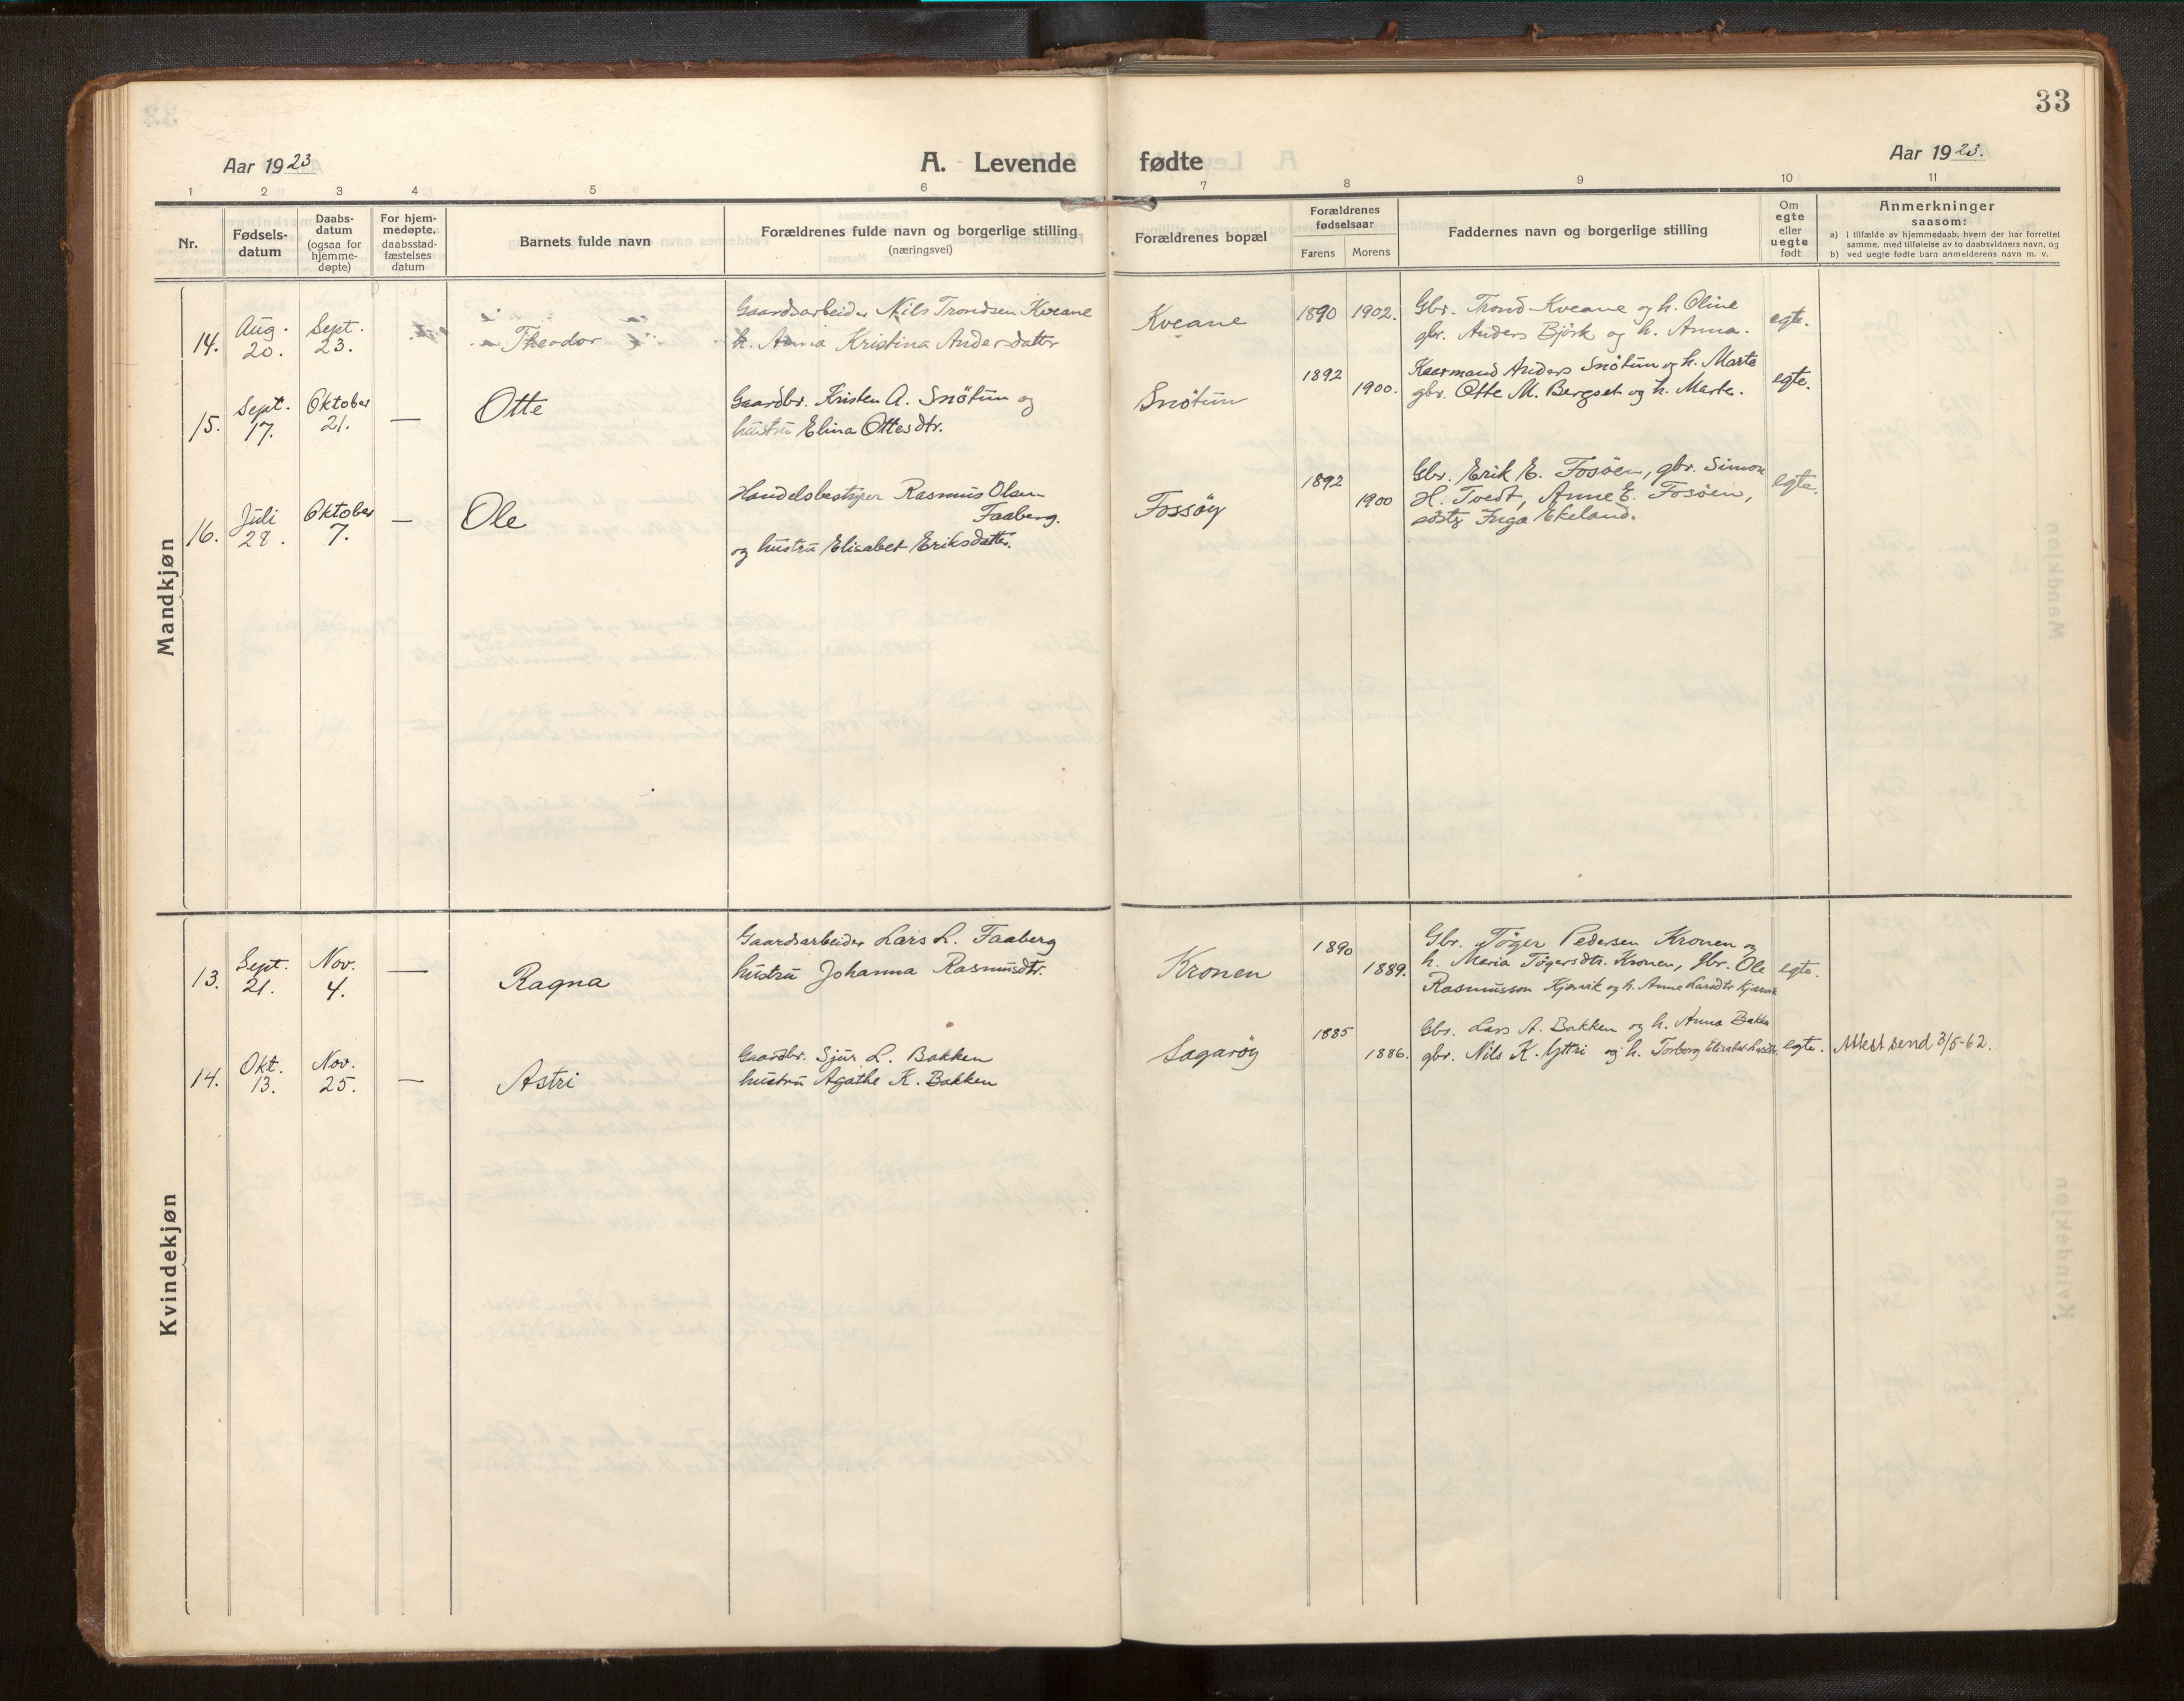 33
Aar 1923
A. Levende fødte
Aar 1923.
1 2 3 4 5 6 7 8 9 10 11
Nr.
Fødsels-
datum
Daabs-
datum
(ogsaa for
hjemme-
døpte)
For hjem-
medøpte,
daabsstad-
fæstelses
datum
Barnets fulde navn
Forældrenes fulde navn og borgerlige stilling
(næringsvei)
Forældrenes bopæl
Forældrenes
fødselsaar
Farens Morens
Faddernes navn og borgerlige stilling
Om
egte
eller
uegte
født
Anmerkninger
saasom:
a) i tilfælde av hjemmedaab, hvem der har forrettet
samme, med tilføielse av to daabsvidners navn, og
b) ved uegte fødte barn anmelderens navn m. v.
Mandkjøn
14.
Aug.
20.
Sept.
23.
Theodor
Gaardsarbeider Nils Trondsen Kveane
h. Anna Kristina Andersdatter
Kveane
1890 1902.
Gbr. Trond Kveane og h. Oline
gbr. Anders Björk og h. Anna.
egte.
15.
Sept.
17.
Oktober
21.
—
Otte
Gaardbr. Kristen A. Snötun og
hustru Elina Ottesdtr.
Snötun
1892
1900.
Kaarmand Anders Snötun og h. Marte
gbr. Otte M. Bergset og h. Marte.
egte.
16.
Juli
28.
Oktober
7.
—
Ole
Handelsbestyrer Rasmus Olsen
Faaberg.
og hustru Elisabet Eriksdatter.
Fossöy
1892
1900
Gbr. Erik E. Fosöen, gbr. Simon
H. Tvedt, Anne E. Fosöen,
Inga Ekeland.
egte.
Kvindekjøn
13.
Sept.
21.
Nov.
4.
—
Ragna
Gaardsarbeider Lars L. Faaberg
hustru Johanna Rasmusdtr.
Kronen
1890
1889.
Gbr. Töger Pedersen Kronen og
h. Maria Tögersdtr. Kronen, gbr. Ole
Rasmusson Kjærvik og h. Anne Larsdtr Kjærvik
egte.
14.
Okt.
13.
Nov.
25.
—
Astri
Gaardbr. Sjur L. Bakken
hustru Agathe K. Bakken
Sagaröy
1885
1886.
Gbr. Lars A. Bakken og h. Anna Bakke
gbr. Nils K. Yttri og h. Torborg Elisabet
egte.
Attest send 3/5-62.